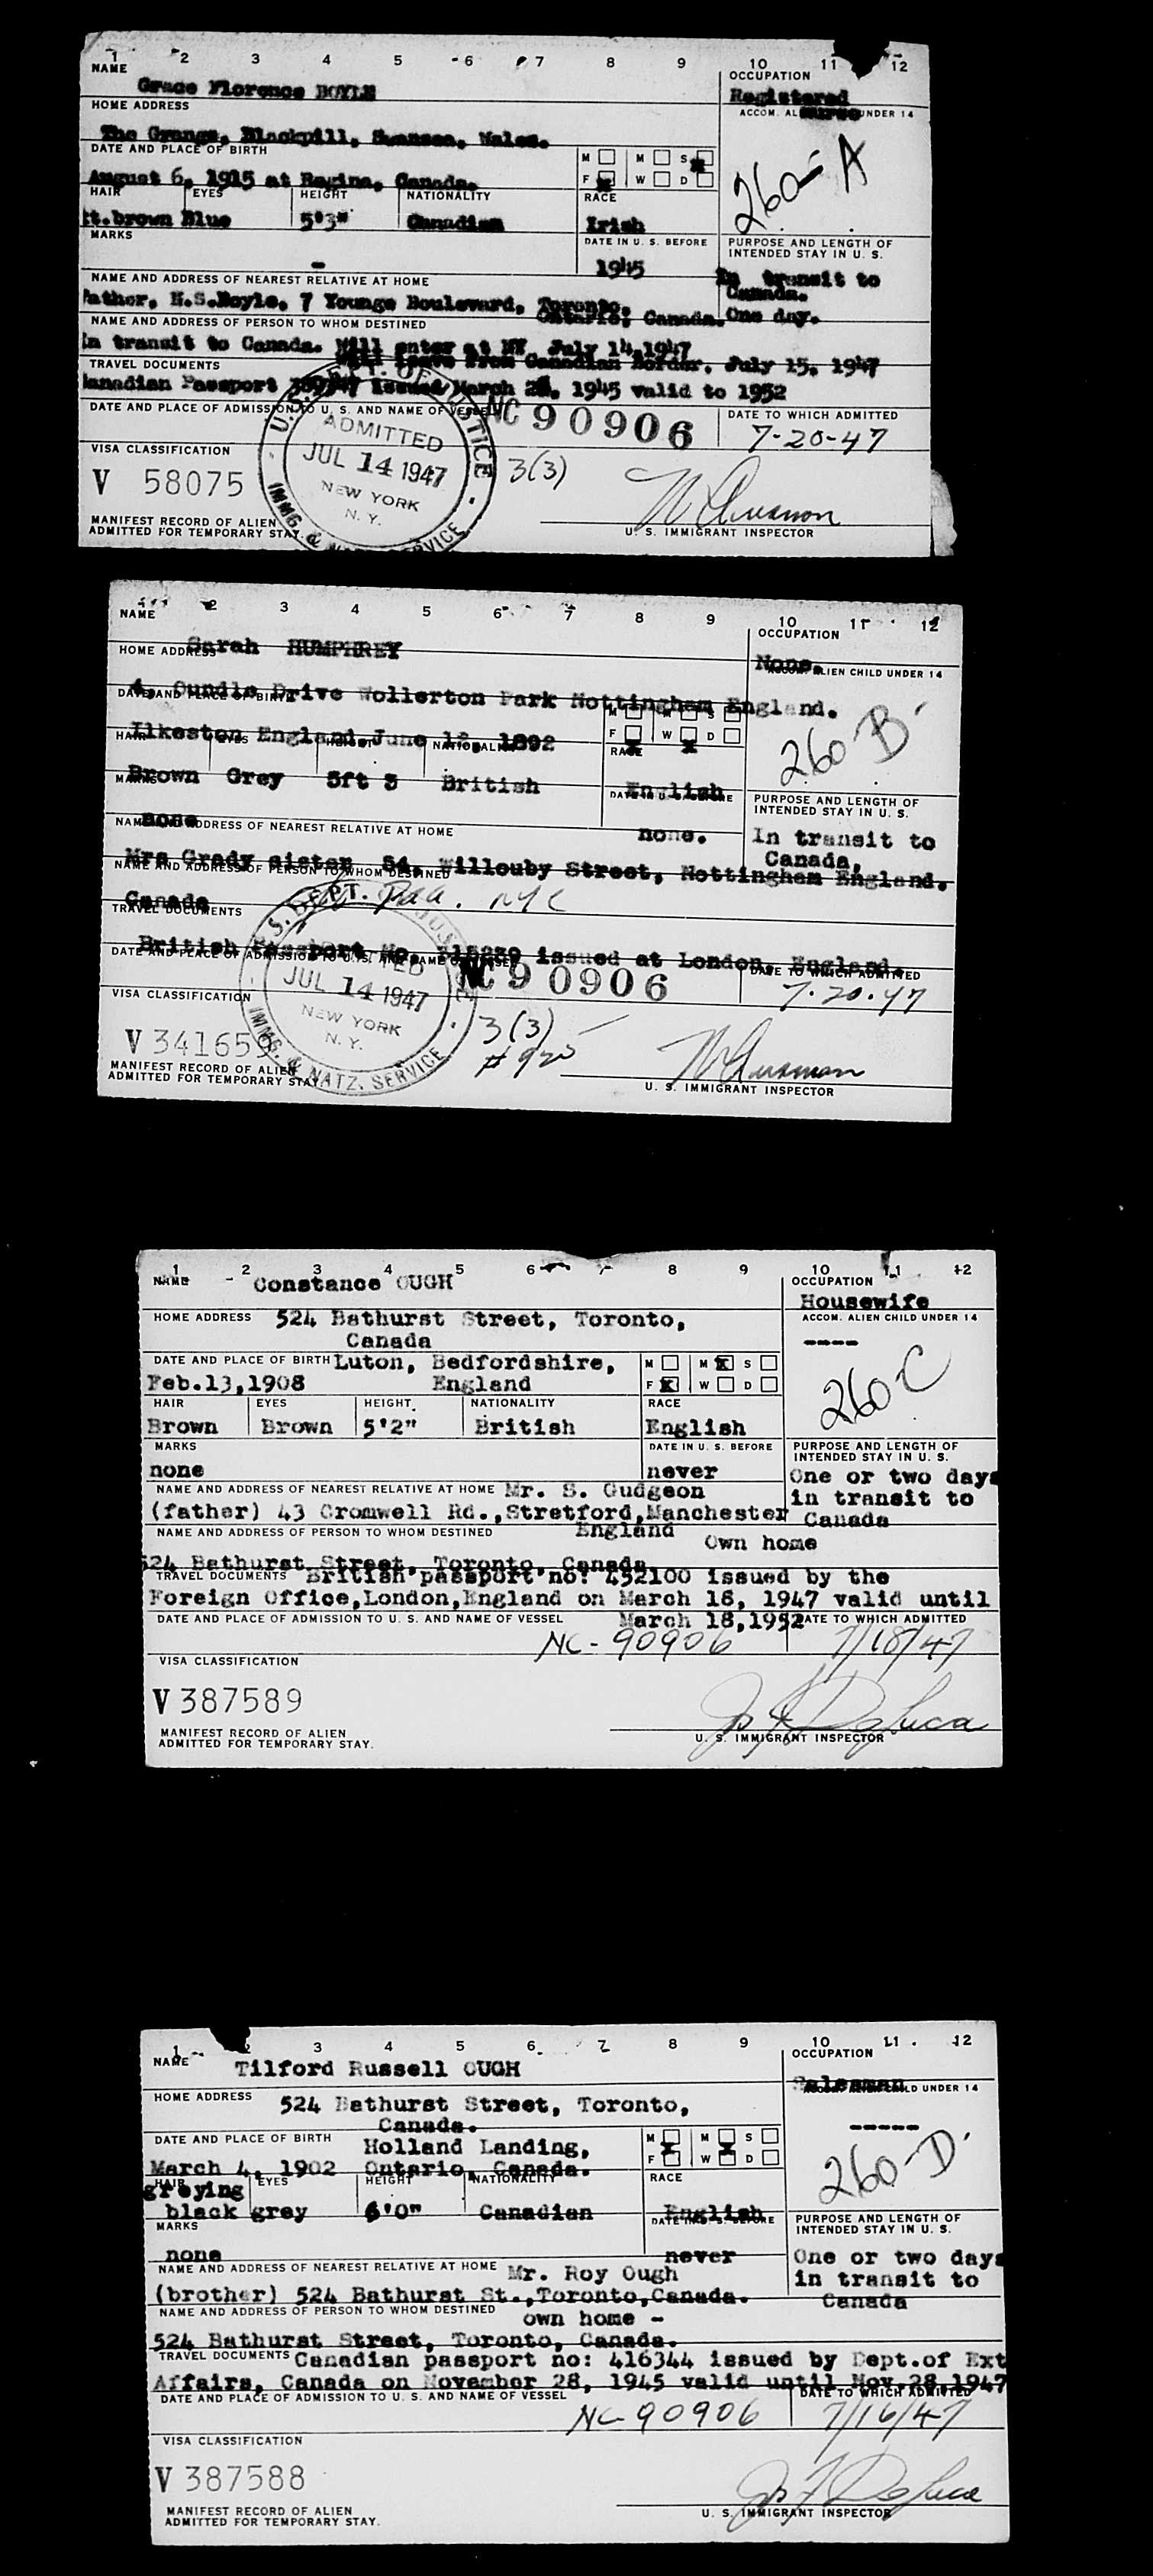 1 2 3 4 5 6 7 8 9 10 11 12
NAME OCCUPATION
Grace Florence BOYLE Registered
HOME ADDRESS ACCOM. AL Nurse UNDER 14
The Grange, Blackpill, Swansea, Wales.
DATE AND PLACE OF BIRTH M M S
August 6, 1915 at Regina, Canada. F X W D 260-A
HAIR EYES HEIGHT NATIONALITY RACE
lt.brown Blue 5'3" Canadian Irish
MARKS DATE IN U. S. BEFORE PURPOSE AND LENGTH OF INTENDED STAY IN U. S.
- 1945 In transit to
NAME AND ADDRESS OF NEAREST RELATIVE AT HOME Canada.
Father, H.S.Boyle, 7 Younge Boulevard, Toronto, Ontario, Canada. One day.
NAME AND ADDRESS OF PERSON TO WHOM DESTINED
In transit to Canada. Will enter at NY July 14,1947
Will leave from Canadian Border, July 15, 1947
TRAVEL DOCUMENTS
Canadian Passport issued March 1945 valid to 1952
DATE AND PLACE OF ADMISSION TO U. S. AND NAME OF VESSEL NC 90906 DATE TO WHICH ADMITTED
7-20-47
U.S. DEPT. OF JUSTICE
ADMITTED
JUL 14 1947
NEW YORK
N. Y.
IMMG. & NATZ. SERVICE
3(3)
VISA CLASSIFICATION
V 58075
MANIFEST RECORD OF ALIEN
ADMITTED FOR TEMPORARY STAY.
U. S. IMMIGRANT INSPECTOR
2 3 4 5 6 7 8 9 10 11 12
NAME OCCUPATION
Sarah HUMPHREY None.
HOME ADDRESS ACCOM. ALIEN CHILD UNDER 14
4, Oundle Drive Wollerton Park Nottingham England.
DATE AND PLACE OF BIRTH M M S
Ilkeston England June 1892 F W D 260 B
HAIR EYES HEIGHT NATIONALITY RACE
Brown Grey 5ft 3 British English
MARKS DATE IN U. S. BEFORE PURPOSE AND LENGTH OF INTENDED STAY IN U. S.
none none. In transit to
NAME AND ADDRESS OF NEAREST RELATIVE AT HOME Canada,
Mrs Grady sister 54, Willouby Street, Nottingham England.
NAME AND ADDRESS OF PERSON TO WHOM DESTINED
Canada NYC
TRAVEL DOCUMENTS
British Passport No. issued at London, England.
DATE AND PLACE OF ADMISSION TO U. S. AND NAME OF VESSEL NC 90906 DATE TO WHICH ADMITTED
7.20.47
U.S. DEPT. OF JUSTICE
ADMITTED
JUL 14 1947
NEW YORK
N. Y.
IMMG. & NATZ. SERVICE
3(3)
VISA CLASSIFICATION
V 34165
MANIFEST RECORD OF ALIEN
ADMITTED FOR TEMPORARY STAY
U. S. IMMIGRANT INSPECTOR
1 2 3 4 5 6 7 8 9 10 11 12
NAME Constance OUGH OCCUPATION
Housewife
HOME ADDRESS 524 Bathurst Street, Toronto, ACCOM. ALIEN CHILD UNDER 14
Canada ----
DATE AND PLACE OF BIRTH Luton, Bedfordshire, M M X S
Feb.13,1908 England F X W D 260-C
HAIR EYES HEIGHT NATIONALITY RACE
Brown Brown 5'2" British English
MARKS DATE IN U. S. BEFORE PURPOSE AND LENGTH OF INTENDED STAY IN U. S.
none never One or two days
NAME AND ADDRESS OF NEAREST RELATIVE AT HOME Mr. S. Gudgeon in transit to
(father) 43 Cromwell Rd.,Stretford,Manchester Canada
NAME AND ADDRESS OF PERSON TO WHOM DESTINED England Own home
524 Bathurst Street, Toronto, Canada
TRAVEL DOCUMENTS British passport no: 452100 issued by the
Foreign Office,London,England on March 18, 1947 valid until
DATE AND PLACE OF ADMISSION TO U. S. AND NAME OF VESSEL March 18,1952 DATE TO WHICH ADMITTED
NC-90906 7/18/47
VISA CLASSIFICATION
V 387589
MANIFEST RECORD OF ALIEN
ADMITTED FOR TEMPORARY STAY.
Jos F DeLuca
U. S. IMMIGRANT INSPECTOR
1 2 3 4 5 6 7 8 9 10 11 12
NAME Tilford Russell OUGH OCCUPATION
Salesman
HOME ADDRESS 524 Bathurst Street, Toronto, ACCOM. ALIEN CHILD UNDER 14
Canada. -----
DATE AND PLACE OF BIRTH Holland Landing, M M S
March 4, 1902 Ontario, Canada. F W D 260-D
HAIR EYES HEIGHT NATIONALITY RACE
greying
black grey 6'0" Canadian English
MARKS DATE IN U. S. BEFORE PURPOSE AND LENGTH OF INTENDED STAY IN U. S.
none never One or two days
NAME AND ADDRESS OF NEAREST RELATIVE AT HOME Mr. Roy Ough in transit to
(brother) 524 Bathurst St.,Toronto,Canada. Canada
NAME AND ADDRESS OF PERSON TO WHOM DESTINED own home -
524 Bathurst Street, Toronto, Canada.
TRAVEL DOCUMENTS Canadian passport no: 416344 issued by Dept.of Ext
Affairs, Canada on November 28, 1945 valid until Nov.28,1947
DATE AND PLACE OF ADMISSION TO U. S. AND NAME OF VESSEL DATE TO WHICH ADMITTED
NC-90906 7/16/47
VISA CLASSIFICATION
V 387588
MANIFEST RECORD OF ALIEN
ADMITTED FOR TEMPORARY STAY.
Jos F DeLuca
U. S. IMMIGRANT INSPECTOR